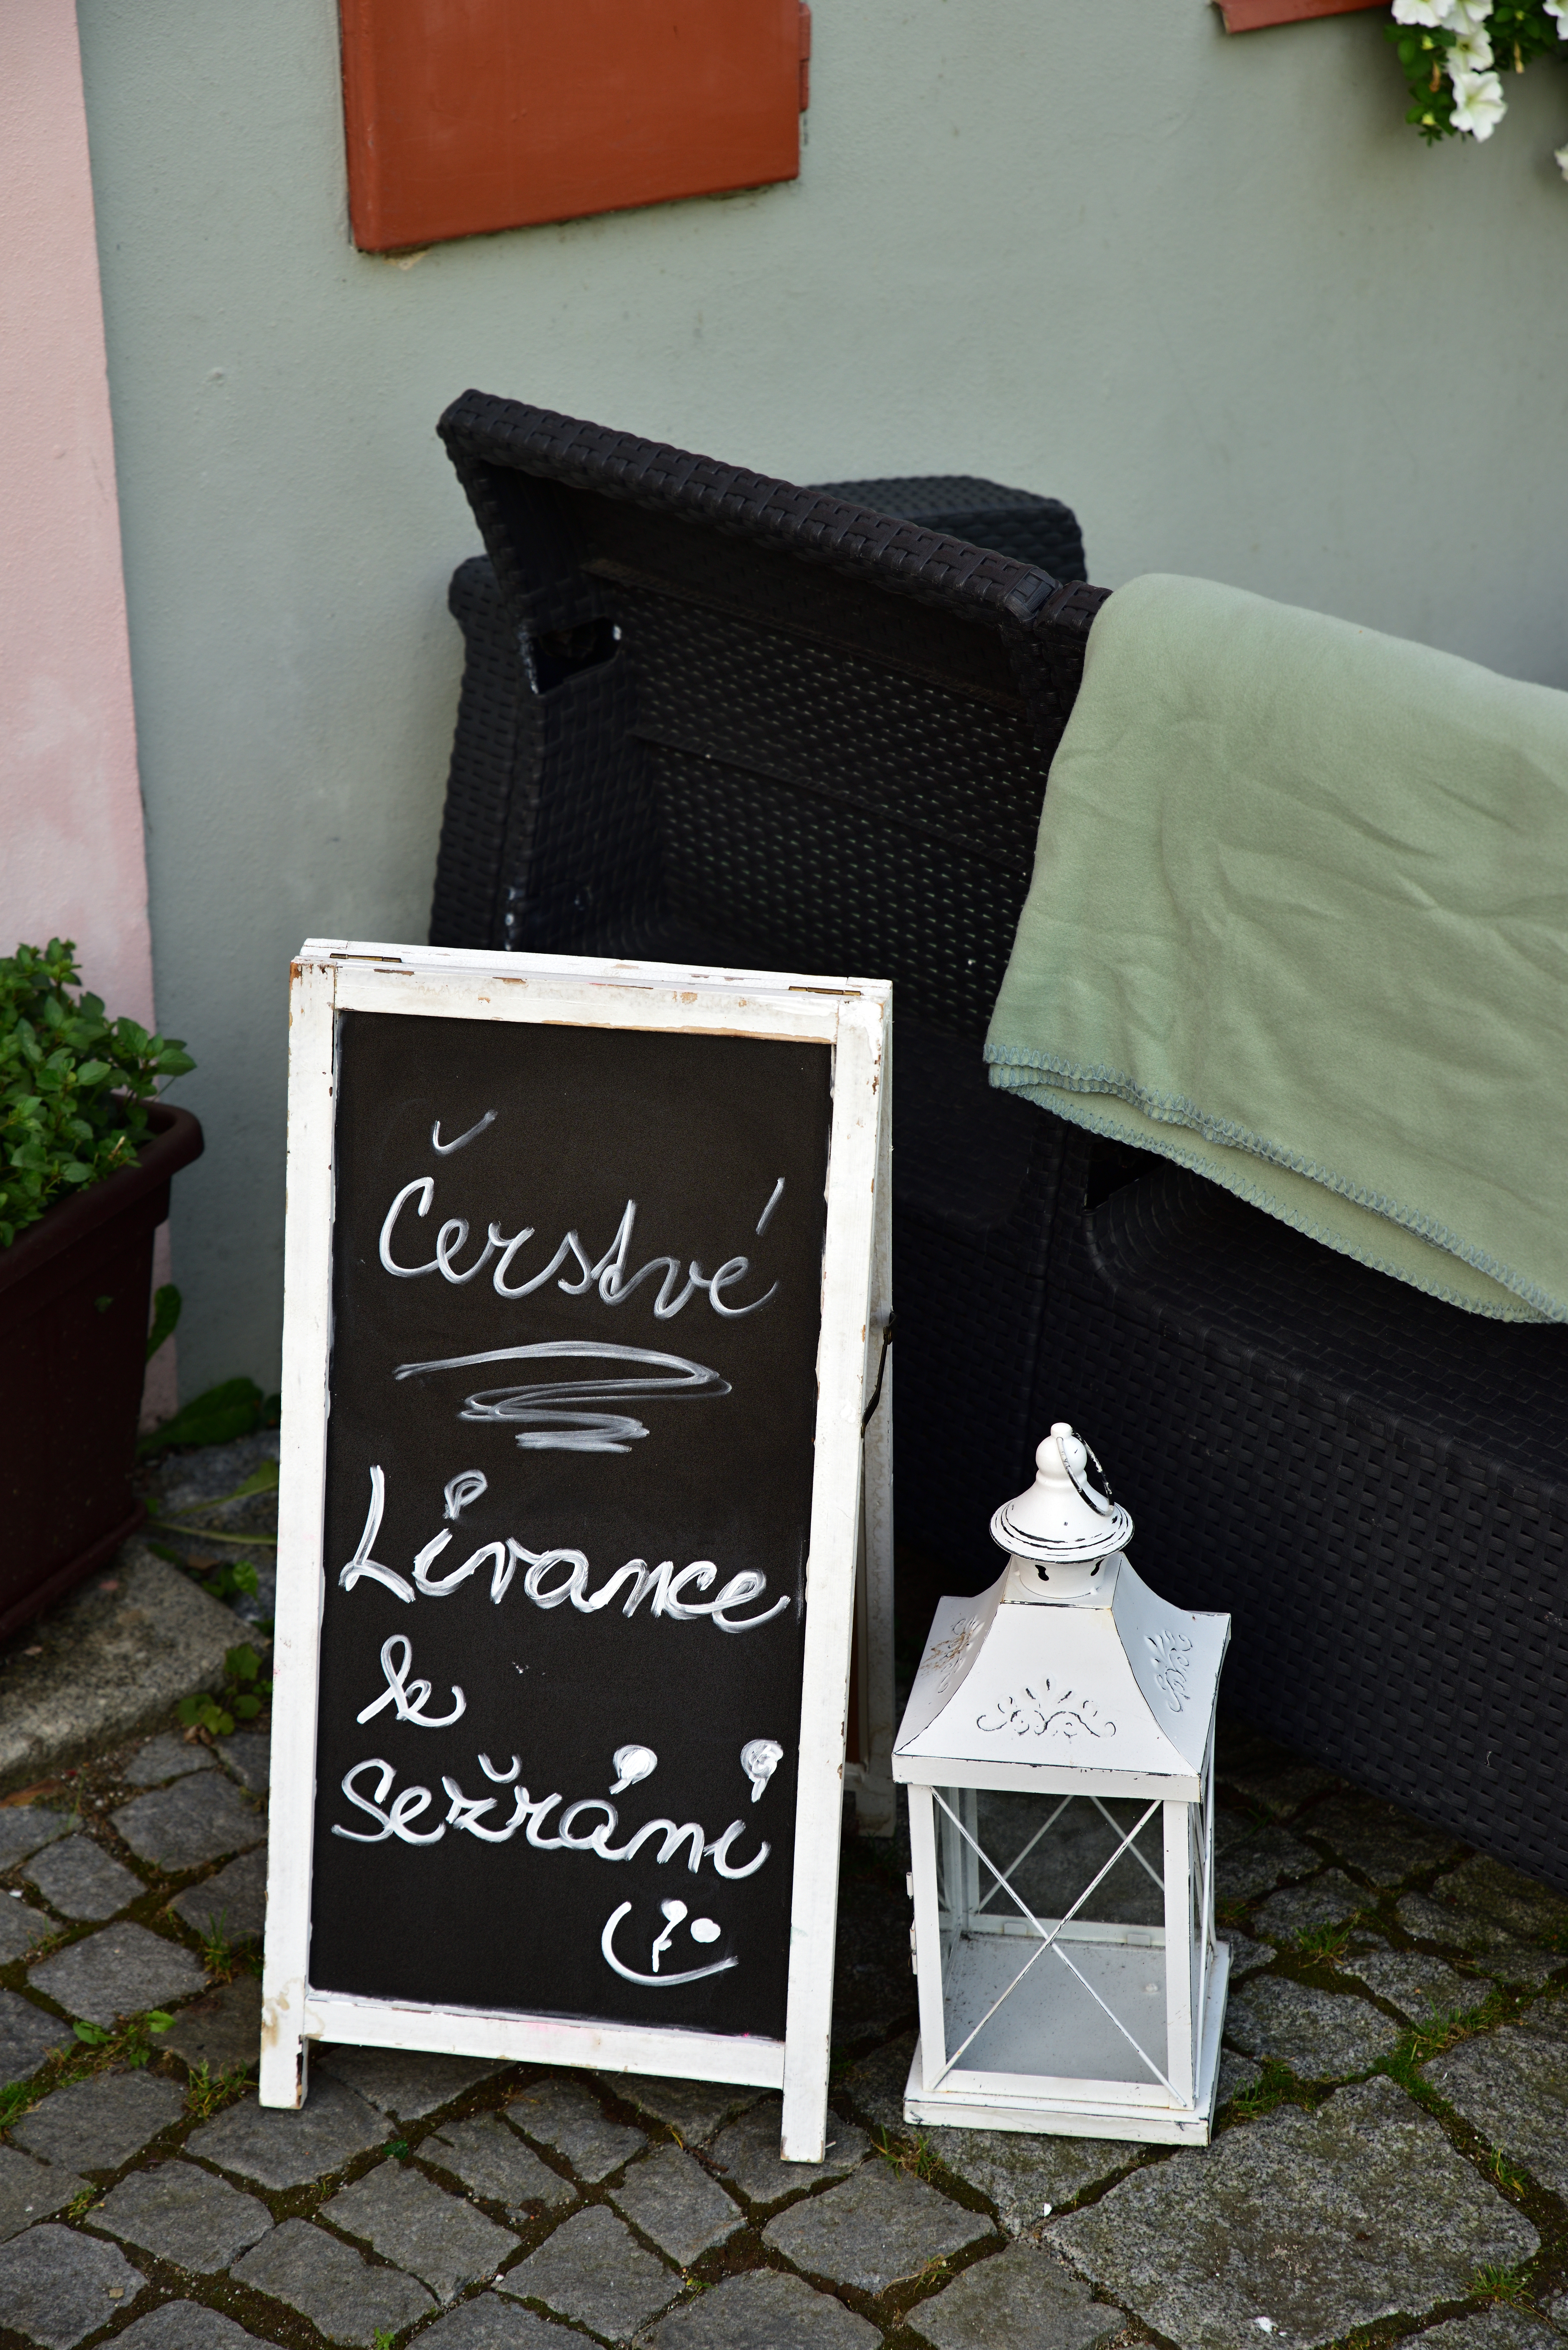 Čerstvé
Livance
k
Sežrání